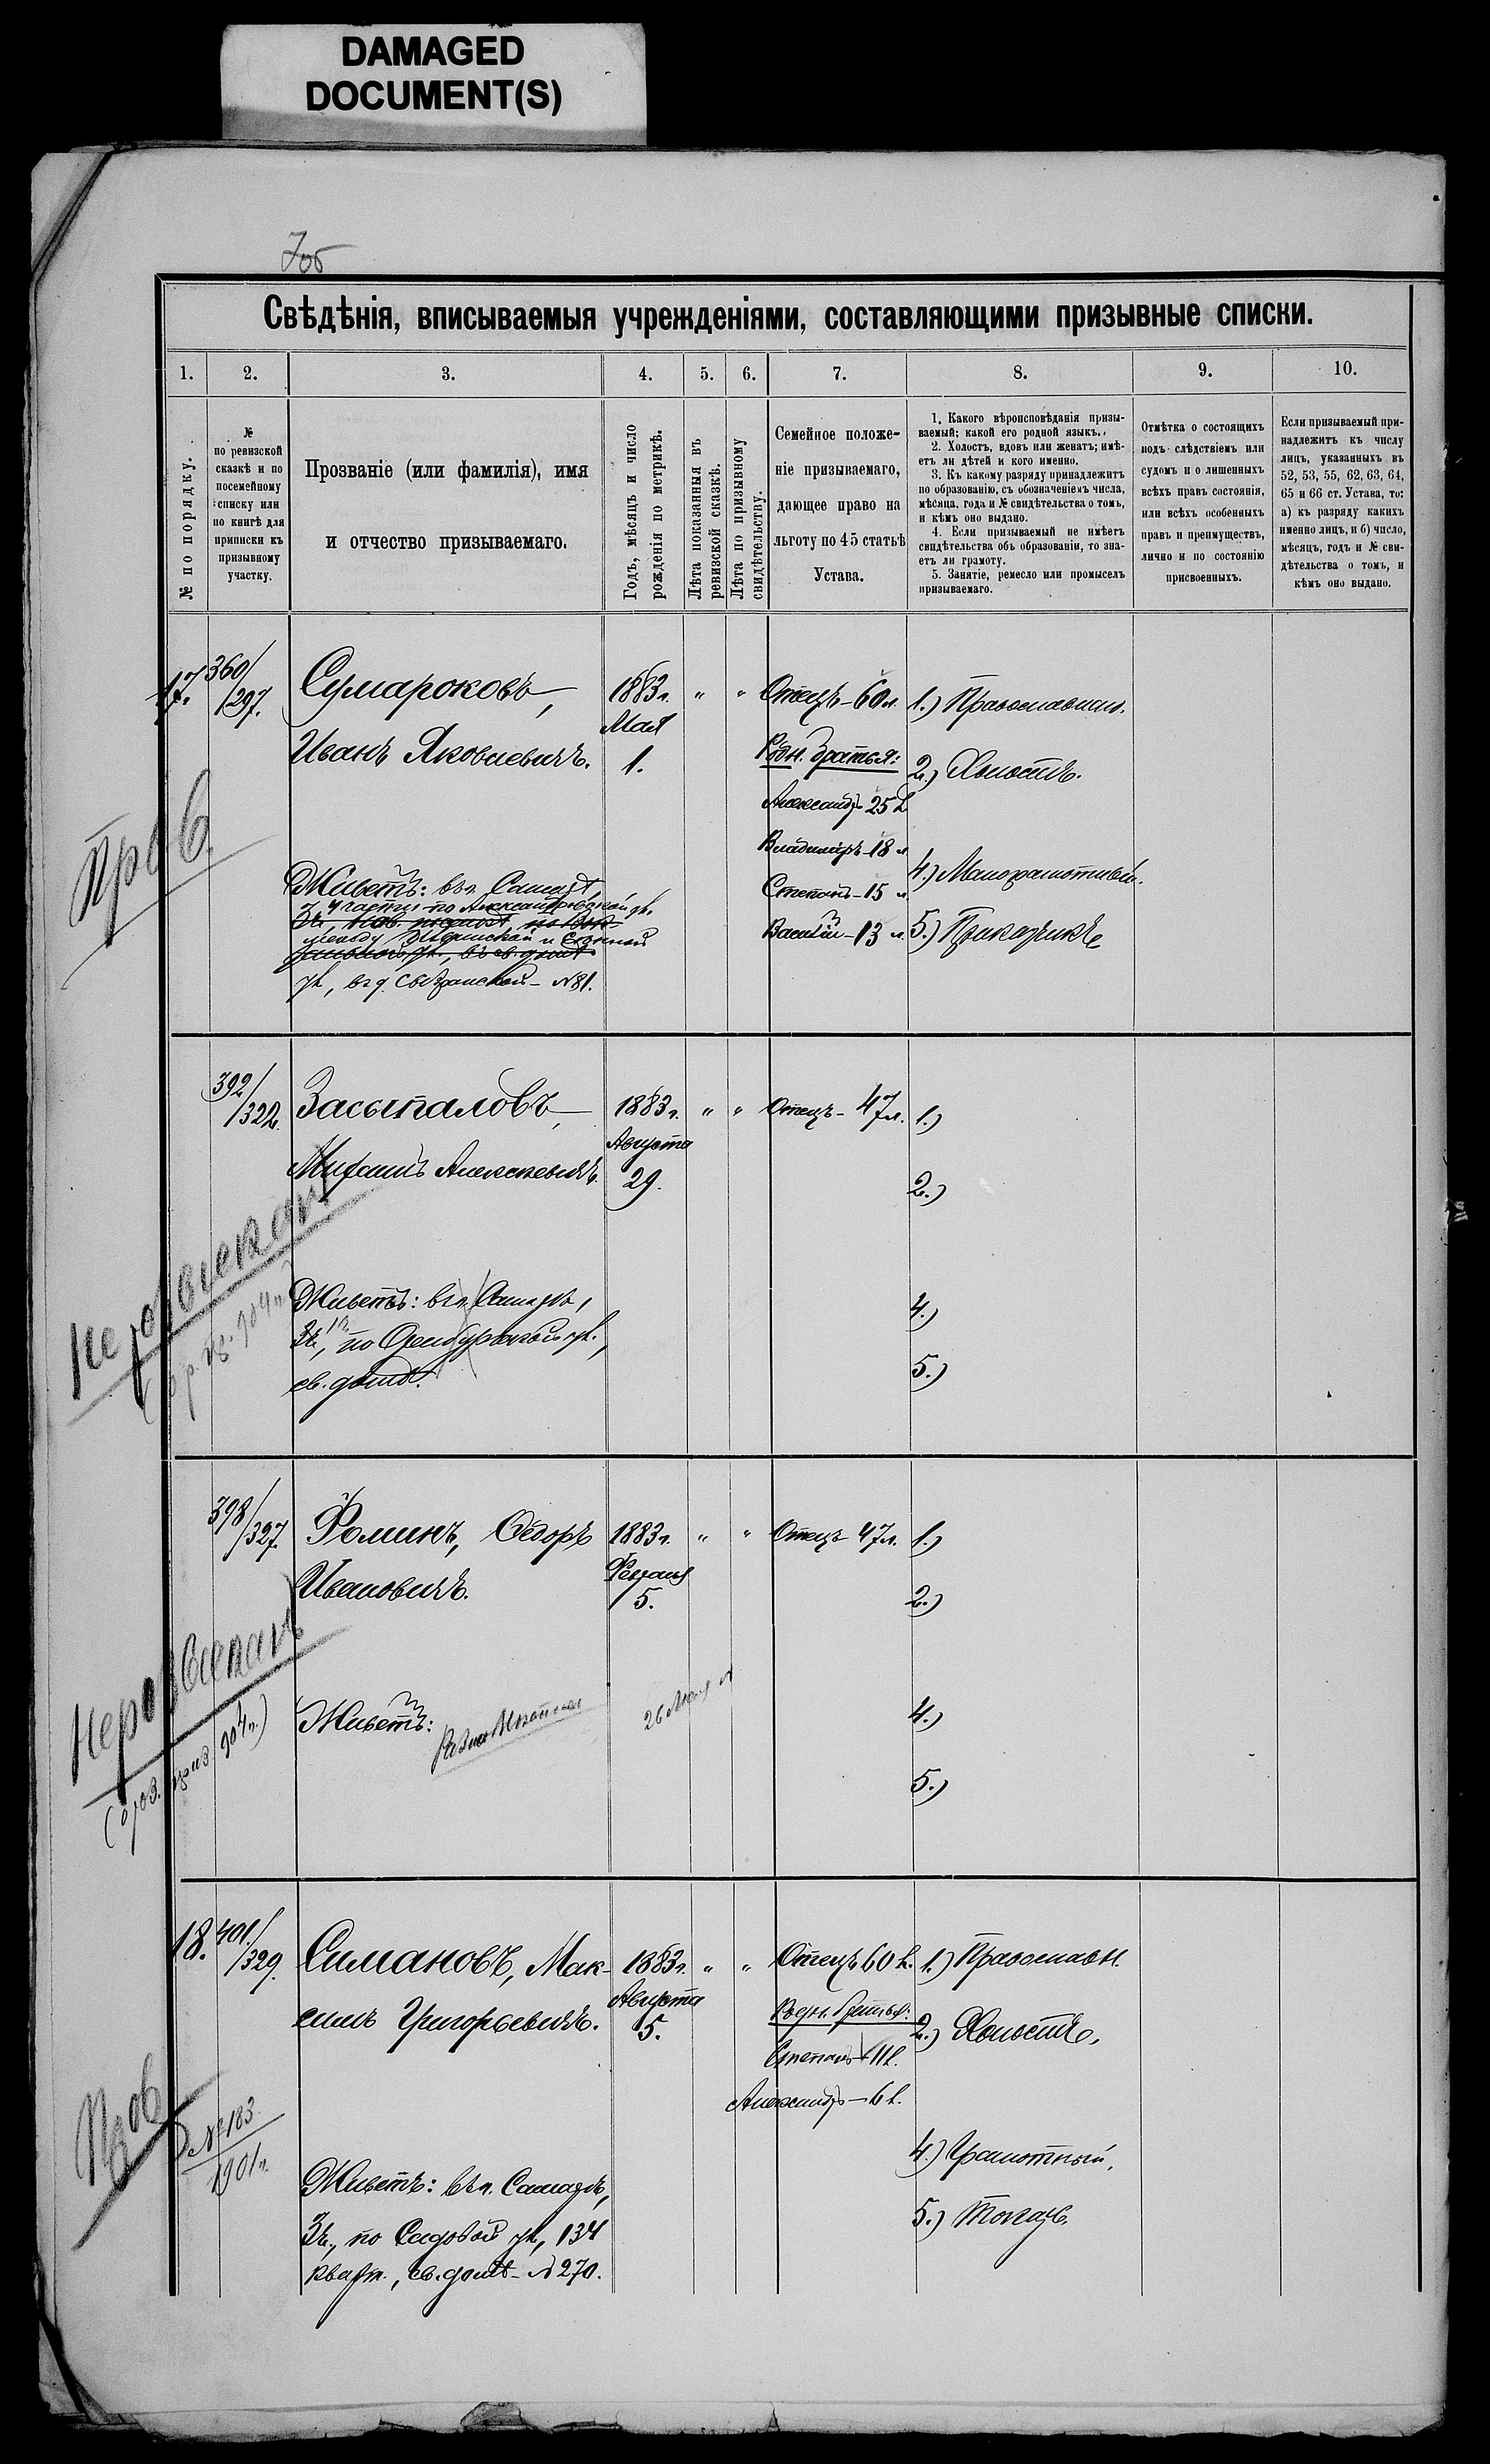 DAMAGED
DOCUMENT(S)
7об
Свѣдѣнія, вписываемыя учрежденіями, составляющими призывные списки.
1. 2. 3. 4. 5. 6. 7. 8. 9. 10.
№ по порядку.
№
по ревизской
сказкѣ и по
посемейному
списку или
по книгѣ для
приписки къ
призывному
участку.
Прозваніе (или фамилія), имя
и отчество призываемаго.
Годъ, мѣсяцъ и число
рожденія по метрикѣ.
Лѣта показанныя въ
ревизской сказкѣ.
Лѣта по призывному
свидѣтельству.
Семейное положе-
ніе призываемаго,
дающее право на
льготу по 45 статьѣ
Устава.
1. Какого вѣроисповѣданія призы-
ваемый; какой его родной языкъ.
2. Холостъ, вдовъ или женатъ; имѣ-
етъ ли дѣтей и кого именно.
3. Къ какому разряду принадлежитъ
по образованію, съ обозначеніемъ числа,
мѣсяца, года и № свидѣтельства о томъ,
и кѣмъ оно выдано.
4. Если призываемый не имѣетъ
свидѣтельства объ образованіи, то зна-
етъ ли грамоту.
5. Занятіе, ремесло или промыселъ
призываемаго.
Отмѣтка о состоящихъ
подъ слѣдствіемъ или
судомъ и о лишенныхъ
всѣхъ правъ состоянія,
или всѣхъ особенныхъ
правъ и преимуществъ,
лично и по состоянію
присвоенныхъ.
Если призываемый при-
надлежитъ къ числу
лицъ, указанныхъ въ
52, 53, 55, 62, 63, 64,
65 и 66 ст. Устава, то:
а) къ разряду какихъ
именно лицъ, и б) число,
мѣсяцъ, годъ и № сви-
дѣтельства о томъ, и
кѣмъ оно выдано.
17. 360/297. Сумароковъ, 1883г. " " Отецъ - 60 л. 1.) Православн.
Мая
Иванъ Яковлевичъ. 1. Родн. братья: 2.) Холостъ.
Александръ 25 л
Владиміръ - 18 л
4.) Малограмотный.
Степанъ - 15 л
Василій - 13 л. 5.) Приказчикъ
Живетъ: въ г. Самарѣ,
3 части по Александровской ул.
между Ильинской и
ул., въ д. Сызранской - №81.
392/322. Засыпаловъ, 1883г. " " Отецъ - 47 л. 1.)
Августа
Михаилъ Алексѣевичъ. 29. 2.)
Не розысканъ
Живетъ: въ г. Самарѣ, 4.)
3ч., по Оренбургской ул.,
св. домъ. 5.)
398/327. Фоминъ, Ѳедоръ 1883г. " " Отецъ 47 л. 1.)
Февраля
Ивановичъ. 5. 2.)
Нерозысканъ
Живетъ: 4.)
5.)
18. 401/329. Симановъ, Мак- 1883г. " " Отецъ 60 л. 1.) Православн.
Августа
симъ Григорьевичъ. 5. Родн. братья: 2.) Холостъ.
Степанъ - 11 л.
Александръ - 6 л.
№183
1901г. 4.) Грамотный.
Живетъ: въ г. Самарѣ, 5.) Токарь.
3ч., по Садовой ул., 134
кварт., св. домъ - №270.